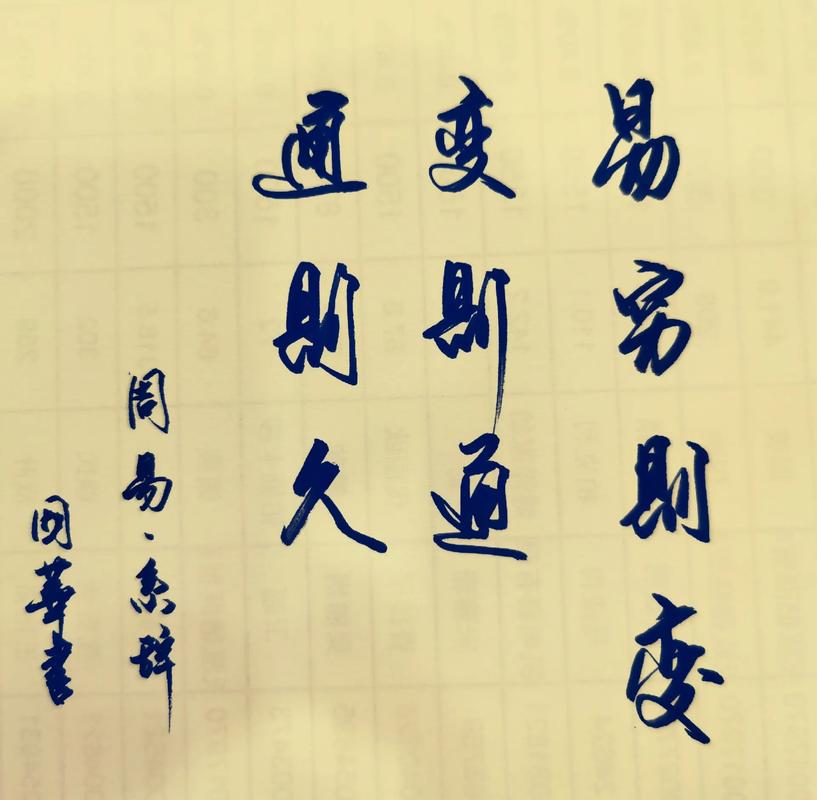 易穷则变
变则通
通则久
周易·系辞
国华书